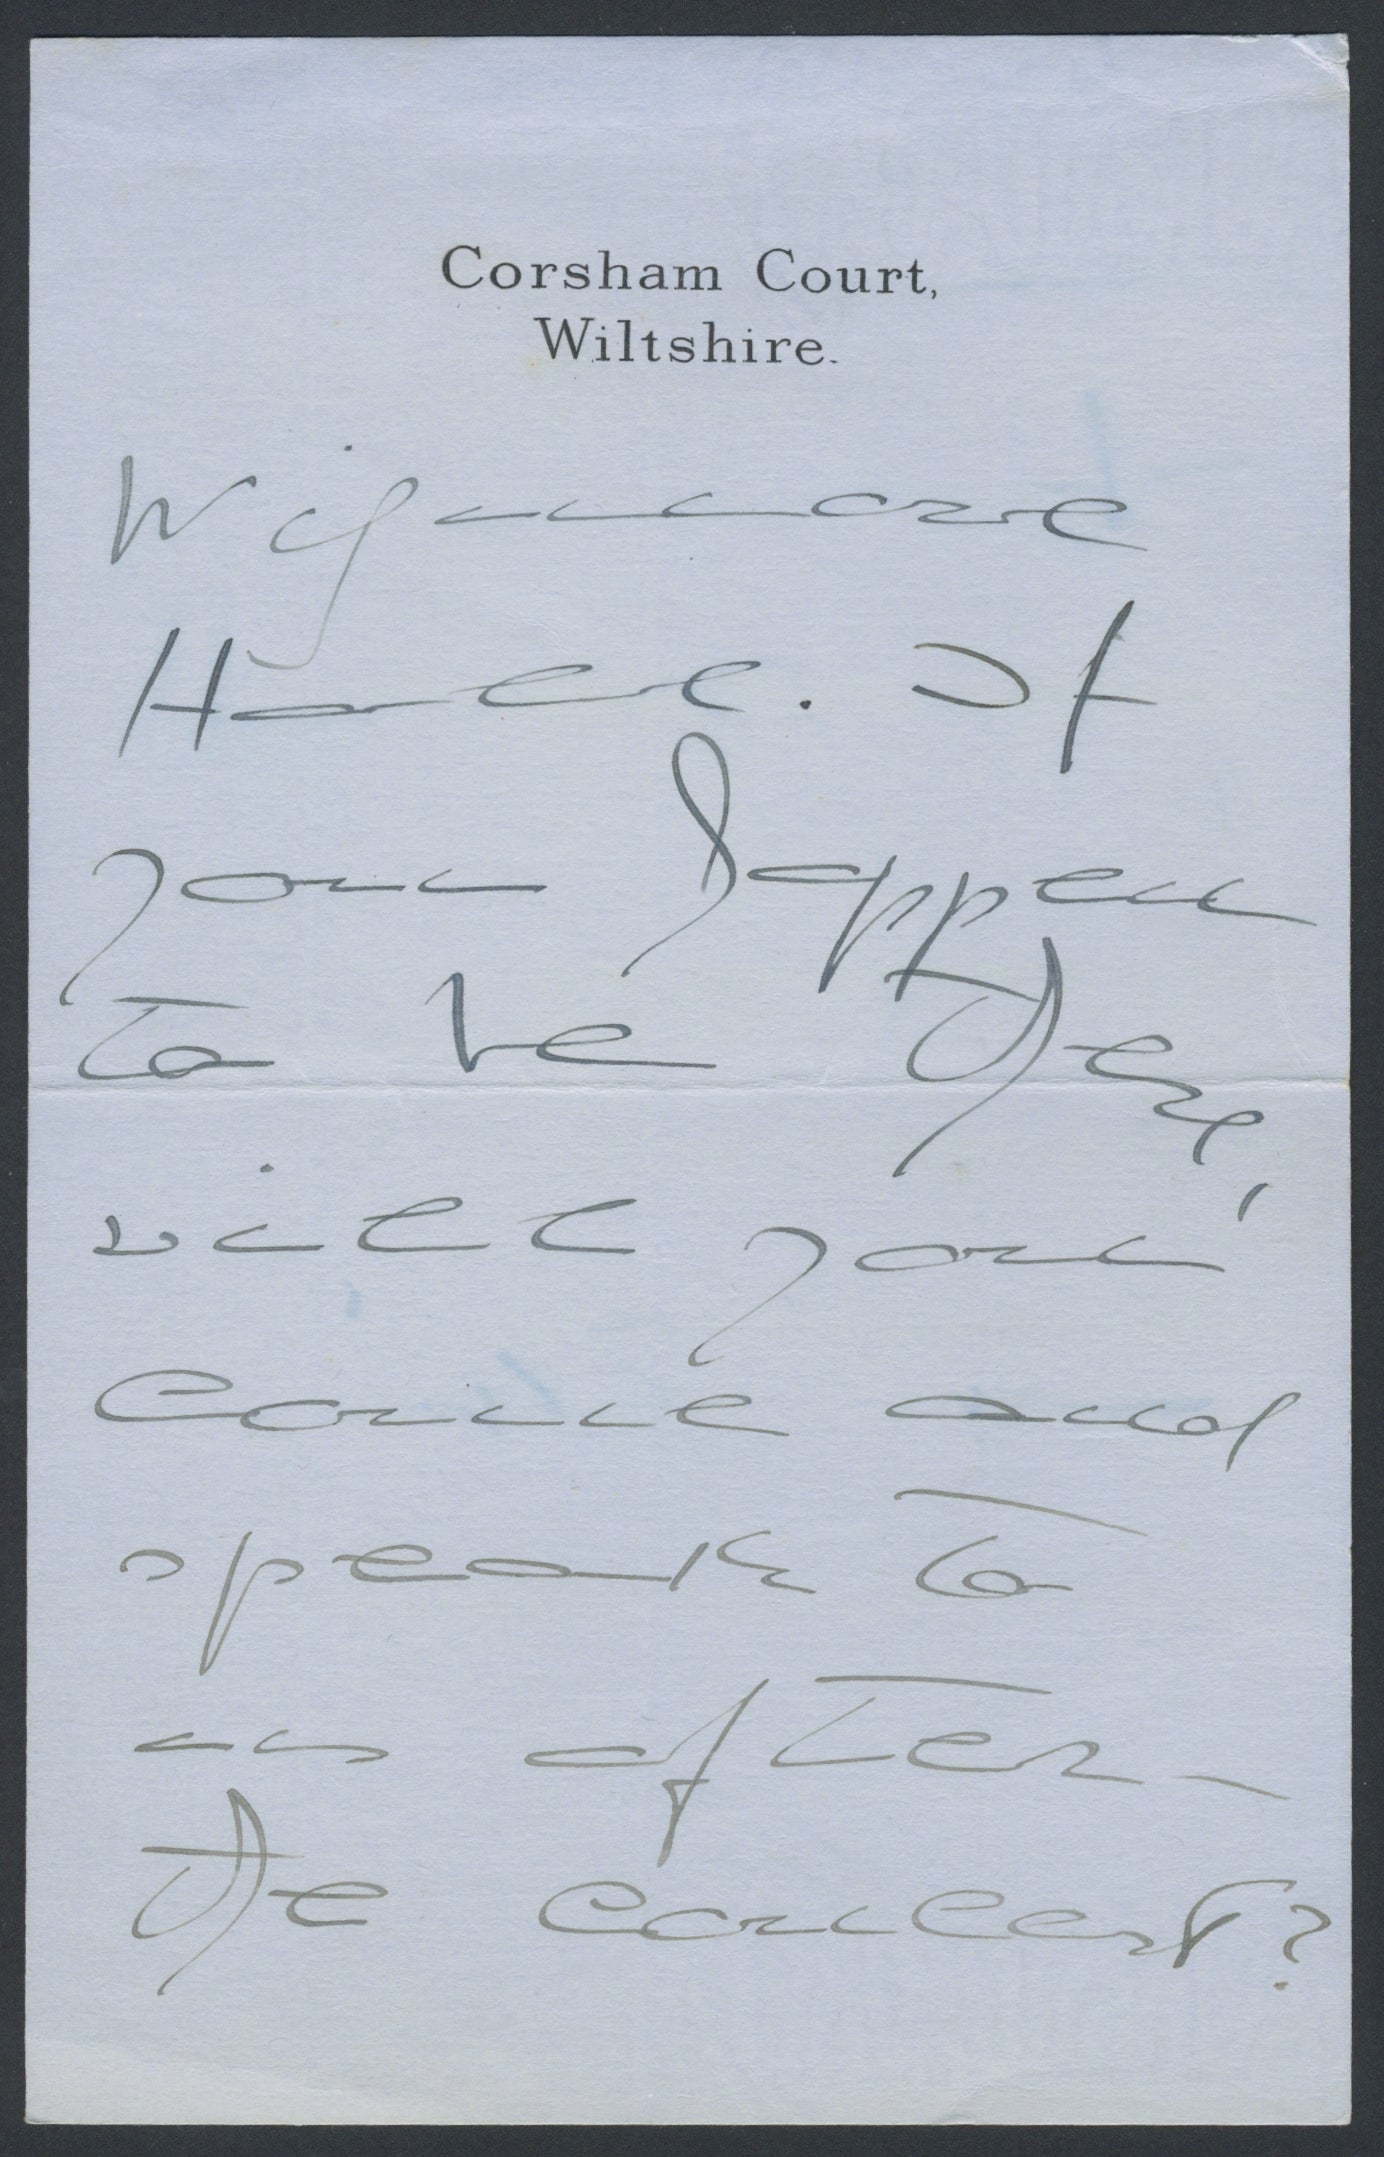 Corsham Court,
Wiltshire.
Wigmore
Hall. If
you happen
to be there,
will you
come and
speak to
us after
the concert?